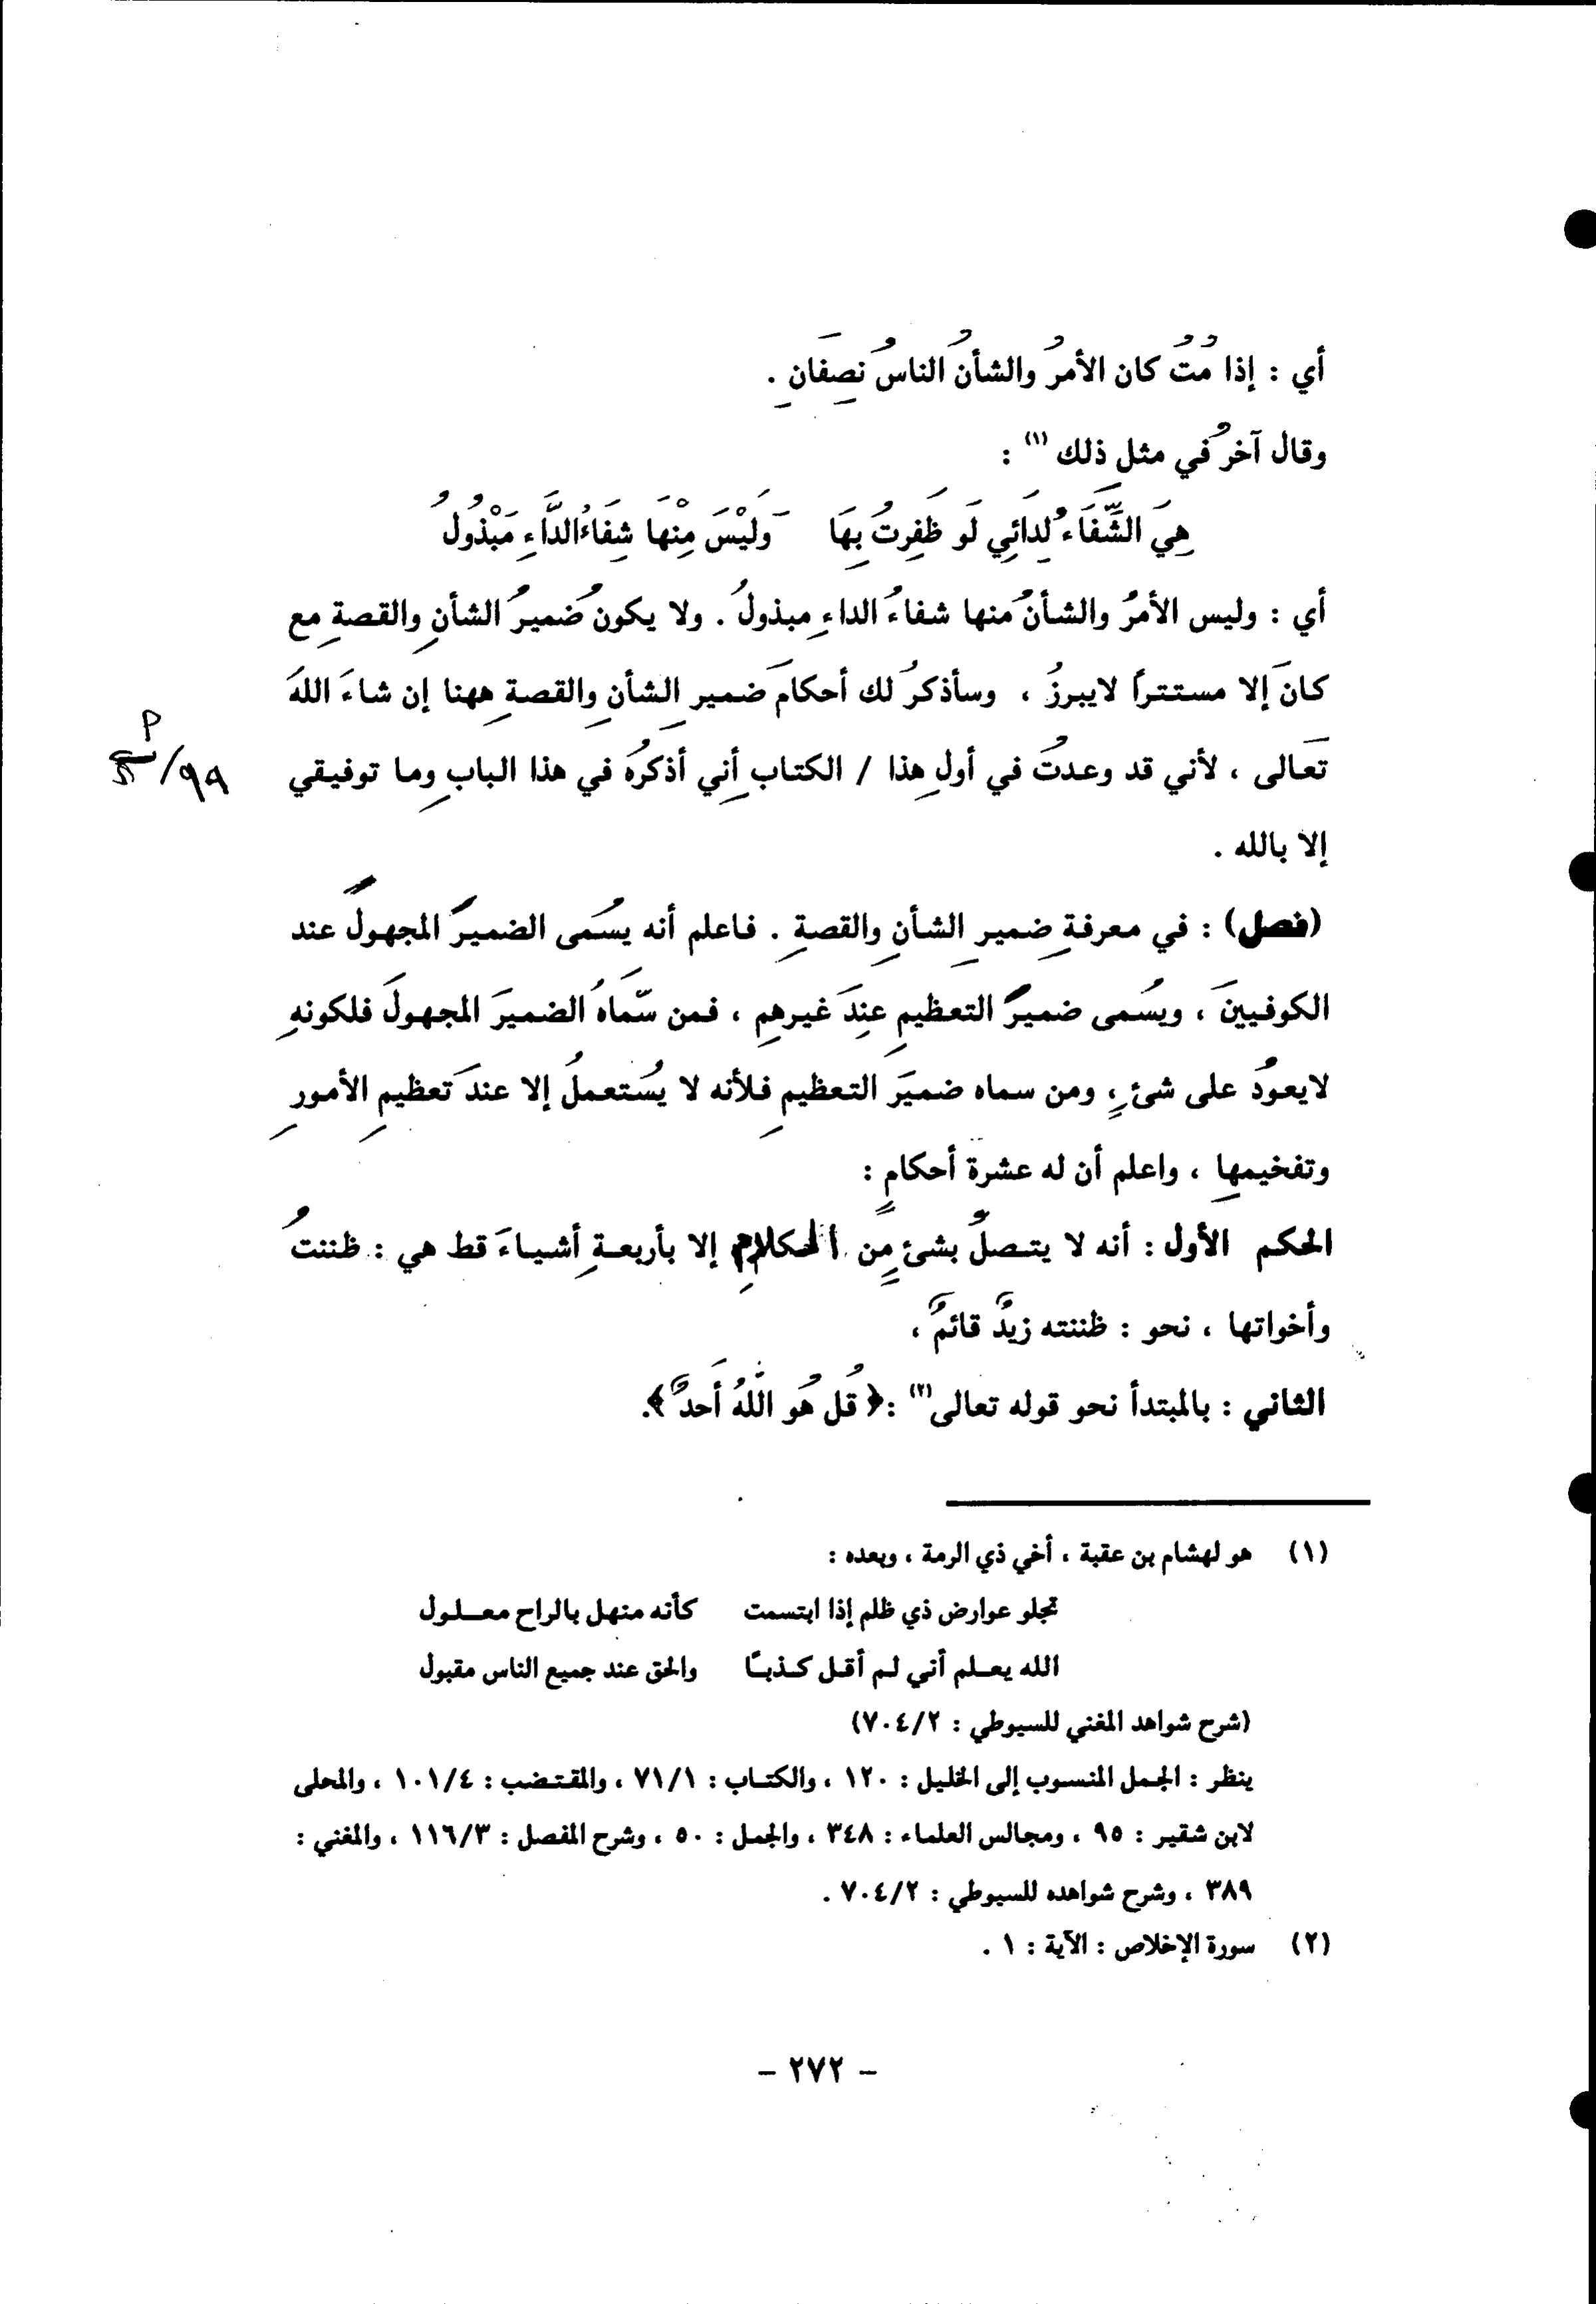 أي : إذا مُتُّ كان الأمرُ والشأنُ الناسُ نصِفَانِ .
وقال آخرُ في مثل ذلك (١) :
هِيَ الشِّفَاءُ لِدَائِي لَو ظَفِرتُ بِهَا    وَلَيْسَ مِنْهَا شِفَاءُ الدَّاءِ مَبْذُولُ
أي : وليس الأمرُ والشأنُ منها شفاءُ الداءِ مبذولُ . ولا يكونُ ضميرُ الشأنِ والقصةِ مع
كانَ إلا مستترًا لايبرزُ ، وسأذكرُ لك أحكامَ ضميرِ الشأنِ والقصةِ ههنا إن شاءَ اللهُ
تعَالى ، لأني قد وعدتُ في أولِ هذا / الكتابِ أني أذكرُه في هذا البابِ وما توفيقي
٩٩/
إلا بالله .
(فصل) : في معرفةِ ضميرِ الشأنِ والقصةِ . فاعلم أنه يسُمى الضميرَ المجهولَ عند
الكوفيينَ ، ويسُمى ضميرَ التعظيمِ عندَ غيرهِم ، فمن سَّماهُ الضميرَ المجهولَ فلكونهِ
لايعودُ على شئٍ ، ومن سماه ضميَر التعظيمِ فلأنه لا يُستعملُ إلا عندَ تعظيمِ الأمورِ
وتفخيمهِا ، واعلم أن له عشرة أحكامٍ :
الحكم الأول : أنه لا يتصلُ بشئٍ مِن الكلامِ إلا بأربعةِ أشياءَ قط هي : ظننتُ
وأخواتها ، نحو : ظننته زيدٌ قائمٌ ،
الثاني : بالمبتدأ نحو قوله تعالى(٢) : ﴿ قُل هُو اللَّهُ أَحدٌ ﴾.
(١) هو لهشام بن عقبة ، أخي ذي الرمة ، وبعده :
تجلو عوارض ذي ظلم إذا ابتسمت    كأنه منهل بالراح معلول
الله يعلم أني لم أقل كذبًا    والحق عند جميع الناس مقبول
(شرح شواهد المغني للسيوطي : ٧٠٤/٢)
ينظر : الجمل المنسوب إلى الخليل : ١٢٠ ، والكتاب : ٧١/١ ، والمقتضب : ١٠١/٤ ، والمحلى
لابن شقير : ٩٥ ، ومجالس العلماء : ٣٤٨ ، والجمل : ٥٠ ، وشرح المفصل : ١١٦/٣ ، والمغني :
٣٨٩ ، وشرح شواهده للسيوطي : ٧٠٤/٢ .
(٢) سورة الإخلاص : الآية : ١ .
- ٢٧٢ -